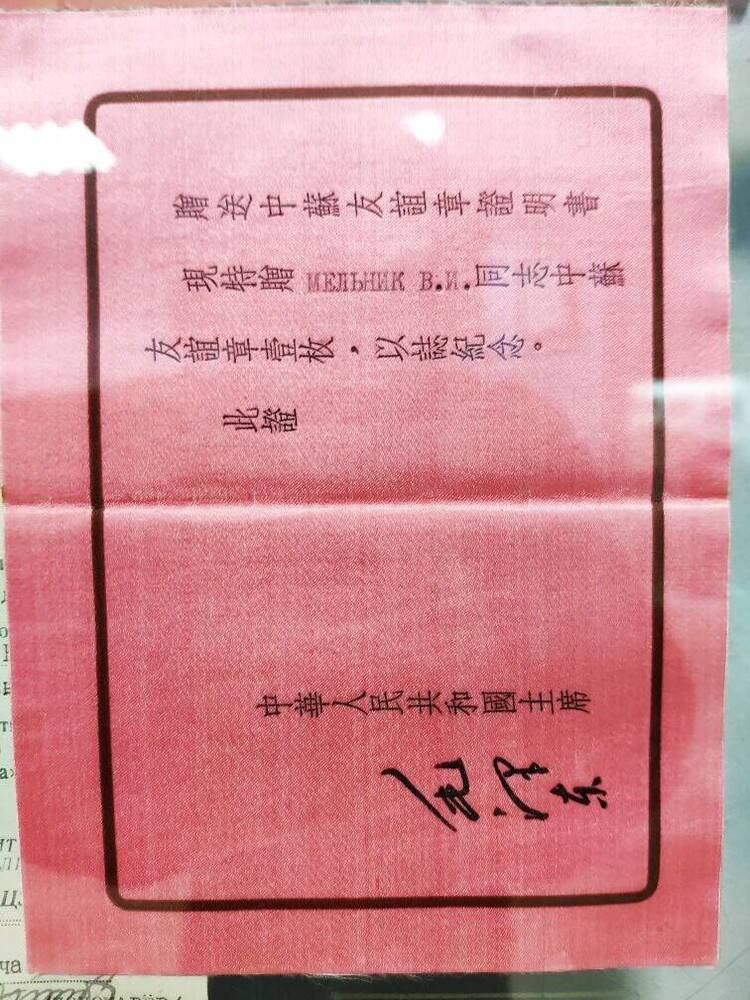 贈送中蘇友誼章證明書
現特贈 МЕЛЬНИК В.И.同志中蘇
友誼章壹枚，以誌紀念。
此證
中華人民共和國主席
毛澤东